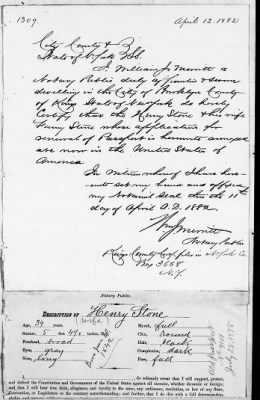 1309.
April 12. 1882
City County &
State of New York SS.
I William J. Merritt a
Notary Public duly appointed & sworn
dwelling in the City of Brooklyn County
of Kings State of New York do hereby
Certify that Henry Stone & his wife
Fanny Stone whose application for
renewal of Passport is hereunto annexed
are now in the United States of
America
In Witness whereof I have here-
unto set my hand and affixed
my Notarial Seal this the 11th
day of April A.D. 1882
Wm J Merritt
Notary Public
Kings County Certf. filed in New York Co
N.Y.
Notary Public.
DESCRIPTION OF Henry Stone
Age, 39 years, Mouth, full
Stature, 5 feet 4½ inches Chin, round
Forehead, broad Hair, black
Eyes, gray Complexion, dark
Nose, long Face, full
do solemnly swear that I will support, protect,
and defend the Constitution and Government of the United States against all enemies, whether domestic or foreign;
and that I will bear true faith, allegiance, and loyalty to the same, any ordinance, resolution, or law of any State,
Convention, or Legislature to the contrary notwithstanding; and further, that I do this with a full determination,